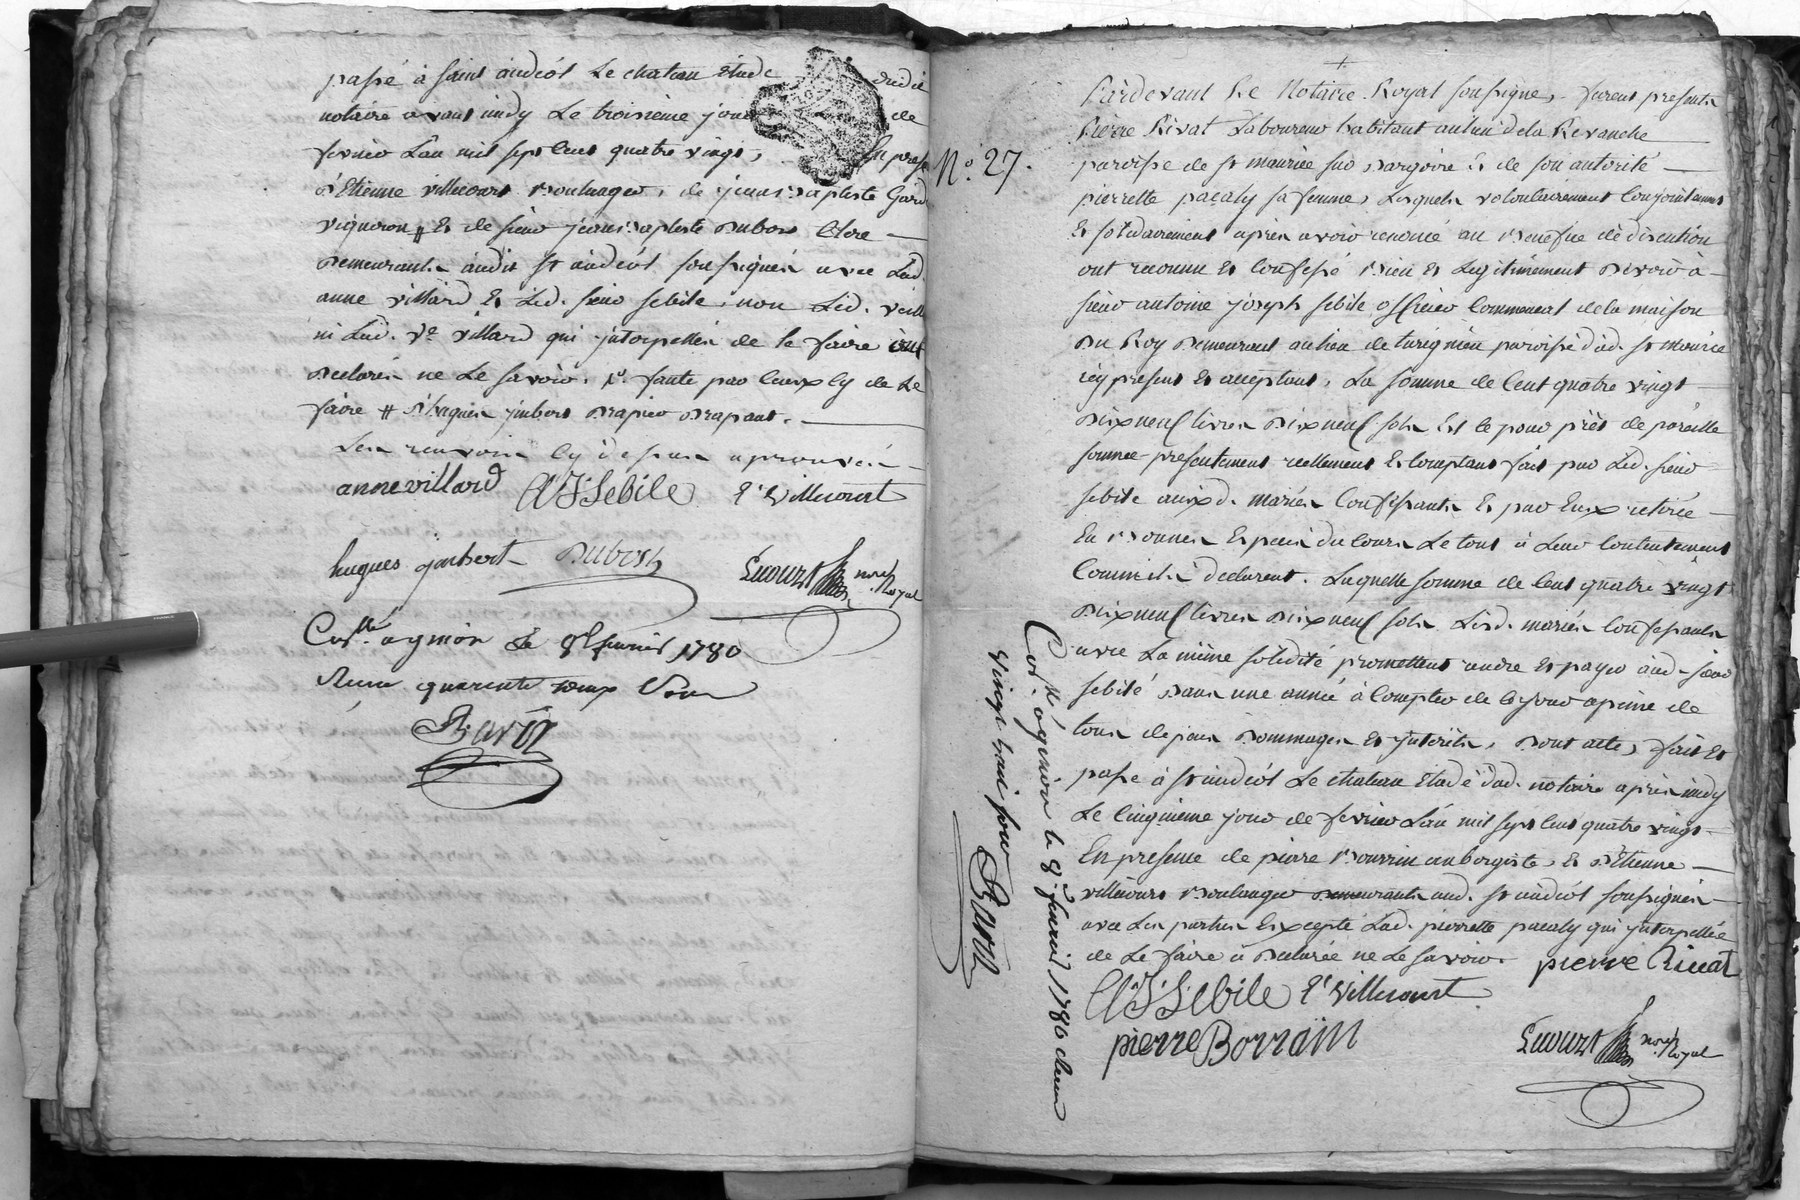 passé à saint andéol Le chateau étude dudit
notaire avant midy Le troisieme jour de
fevrier L'an mil sept cent quatre vingt, En prese
d'Etienne villecourt Boulanger, de jean Baptiste
vigneron # Et de sieur jean Baptiste Dubost Clerc
Demeurants audit st andéol soussignés avec Lad.
anne villard Et Led. sieur sebile, non Led.
ni Lad. Ve villard qui jnterpellés de le faire ont
Declarés ne Le savoir, de Le
faire # D'hugues jmbert Drapier Drapant.
Les renvoin cy dessus aprouvés
anne villard AJSebile E. Villecourt
hugues jmbert Dubost
nore Royal
Conllé a gnion le 8 fevrier 1780
Recu quarente
Baron
+
Pardevant Le Notaire Royal soussigné, furent presents
Pierre Rivat Laboureur habitant au lieu de la Revanche
No. 27.
paroisse de st maurice sur Dargoire Et de son autorité
pierrette pacaly sa femme, Lesquels volontairement Conjointement
Et solidairement après avoir renoncé au Benefice de discution
ont reconnu Et Confessé Bien Et Legitimement Devoir à
sieur antoine joseph sebile officier Commencal de la maison
Du Roy Demeurant au lieu de paroisse dud. st maurice
icy present Et acceptant, La somme de Cent quatre vingt
Dix neuf livres Dix neuf sols Et ce pour prêt de pareille
somme presentement reellement Et Comptant fait par Led. sieur
sebile auxd. mariés Confessants Et par Eux retirée
En Bonnes Especes du Cours Le tout à Leur Contentement
Comm'ils declarent. Laquelle somme de Cent quatre vingt
Dix neuf livres Dix neuf sols Lesd. mariés Confessants
avec La même solidité promettent rendre Et payer aud. sieur
sebile Dans une année à Compter de ce jour apeine de
tous depens Dommages Et jnterêts, Dont acte, fait Et
passé à st andéol Le chateau Etude dud. notaire après midy
Le Cinquieme jour de fevrier L'an mil sept cent quatre vingt
En presence de pierre Bourrin aubergiste, Et D'Etienne
villecourt Boulanger Demeurants aud. st andéol soussignés
avec Les parties Excepté Lad. pierrette pacaly qui jnterpellée
de Le faire a Declarée ne Le savoir. pierre Rivat
AJSebile E. Villecourt
pierre Borrain
nore Royal
Conllé a gnion le 8 fevrier 1780 Recu
vingt huit sous Baron